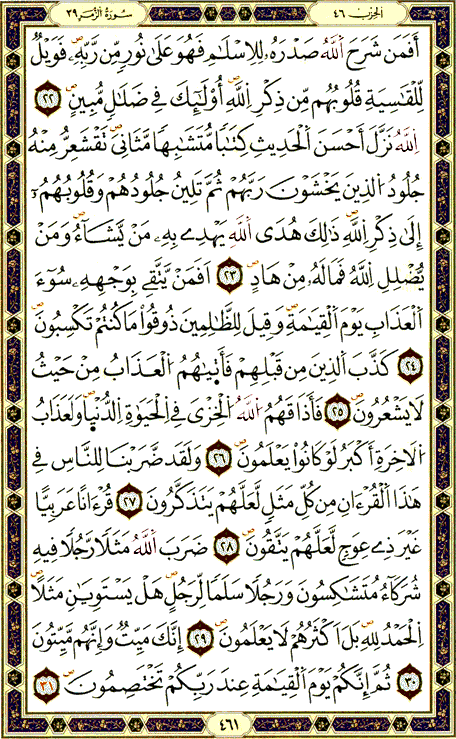 الحزب ٤٦
سورة الزمر ٣٩
أَفَمَن شَرَحَ اَ۬للَّهُ صَدْرَهُۥ لِلِاسْلَٰمِ فَهُوَ عَلَىٰ نُورٖ مِّن رَّبِّهِۦۖ فَوَيْلٞ
لِّلْقَٰسِيَةِ قُلُوبُهُم مِّن ذِكْرِ اِ۬للَّهِۖ أُوْلَٰٓئِكَ فِے ضَلَٰلٖ مُّبِينٍۖ ٢٢
اِ۬للَّهُ نَزَّلَ أَحْسَنَ اَ۬لْحَدِيثِ كِتَٰباٗ مُّتَشَٰبِهاٗ مَّثَانِيَۖ تَقْشَعِرُّ مِنْهُ
جُلُودُ اُ۬لذِينَ يَخْشَوْنَ رَبَّهُمْ ثُمَّ تَلِينُ جُلُودُهُمْ وَقُلُوبُهُمُۥٓ
إِلَىٰ ذِكْرِ اِ۬للَّهِۖ ذَٰلِكَ هُدَى اَ۬للَّهِ يَهْدِے بِهِۦ مَنْ يَّشَآءُۖ وَمَنْ
يُّضْلِلِ اِ۬للَّهُ فَمَا لَهُۥ مِنْ هَادٍۖ ٢٣ اَفَمَنْ يَّتَّقِے بِوَجْهِهِۦ سُوٓءَ
اَ۬لْعَذَابِ يَوْمَ اَ۬لْقِيَٰمَةِۖ وَقِيلَ لِلظَّٰلِمِينَ ذُوقُواْ مَا كُنتُمْ تَكْسِبُونَۖ
٢٤ كَذَّبَ اَ۬لذِينَ مِن قَبْلِهِمْ فَأَتَيٰهُمُ اُ۬لْعَذَابُ مِنْ حَيْثُ
لَا يَشْعُرُونَۖ ٢٥ فَأَذَاقَهُمُ اُ۬للَّهُ اُ۬لْخِزْيَ فِے اِ۬لْحَيَوٰةِ اِ۬لدُّنْي۪اۖ وَلَعَذَابُ
اُ۬لَاخِرَةِ أَكْبَرُ لَوْ كَانُواْ يَعْلَمُونَۖ ٢٦ وَلَقَد ضَّرَبْنَا لِلنَّاسِ فِے
هَٰذَا اَ۬لْقُرْءَانِ مِن كُلِّ مَثَلٖ لَّعَلَّهُمْ يَتَذَكَّرُونَۖ ٢٧ قُرْءَاناً عَرَبِيّاً
غَيْرَ ذِے عِوَجٖ لَّعَلَّهُمْ يَتَّقُونَۖ ٢٨ ضَرَبَ اَ۬للَّهُ مَثَلاٗ رَّجُلاٗ فِيهِ
شُرَكَآءُ مُتَشَٰكِسُونَ وَرَجُلاٗ سَلَماٗ لِّرَجُلٍ هَلْ يَسْتَوِيَٰنِ مَثَلاًۖ
اِ۬لْحَمْدُ لِلهِۖ بَلَ اَكْثَرُهُمْ لَا يَعْلَمُونَۖ ٢٩ إِنَّكَ مَيِّتٞ وَإِنَّهُم مَّيِّتُونَ
٣٠ ثُمَّ إِنَّكُمْ يَوْمَ اَ۬لْقِيَٰمَةِ عِندَ رَبِّكُمْ تَخْتَصِمُونَۖ ٣١
٤٦١